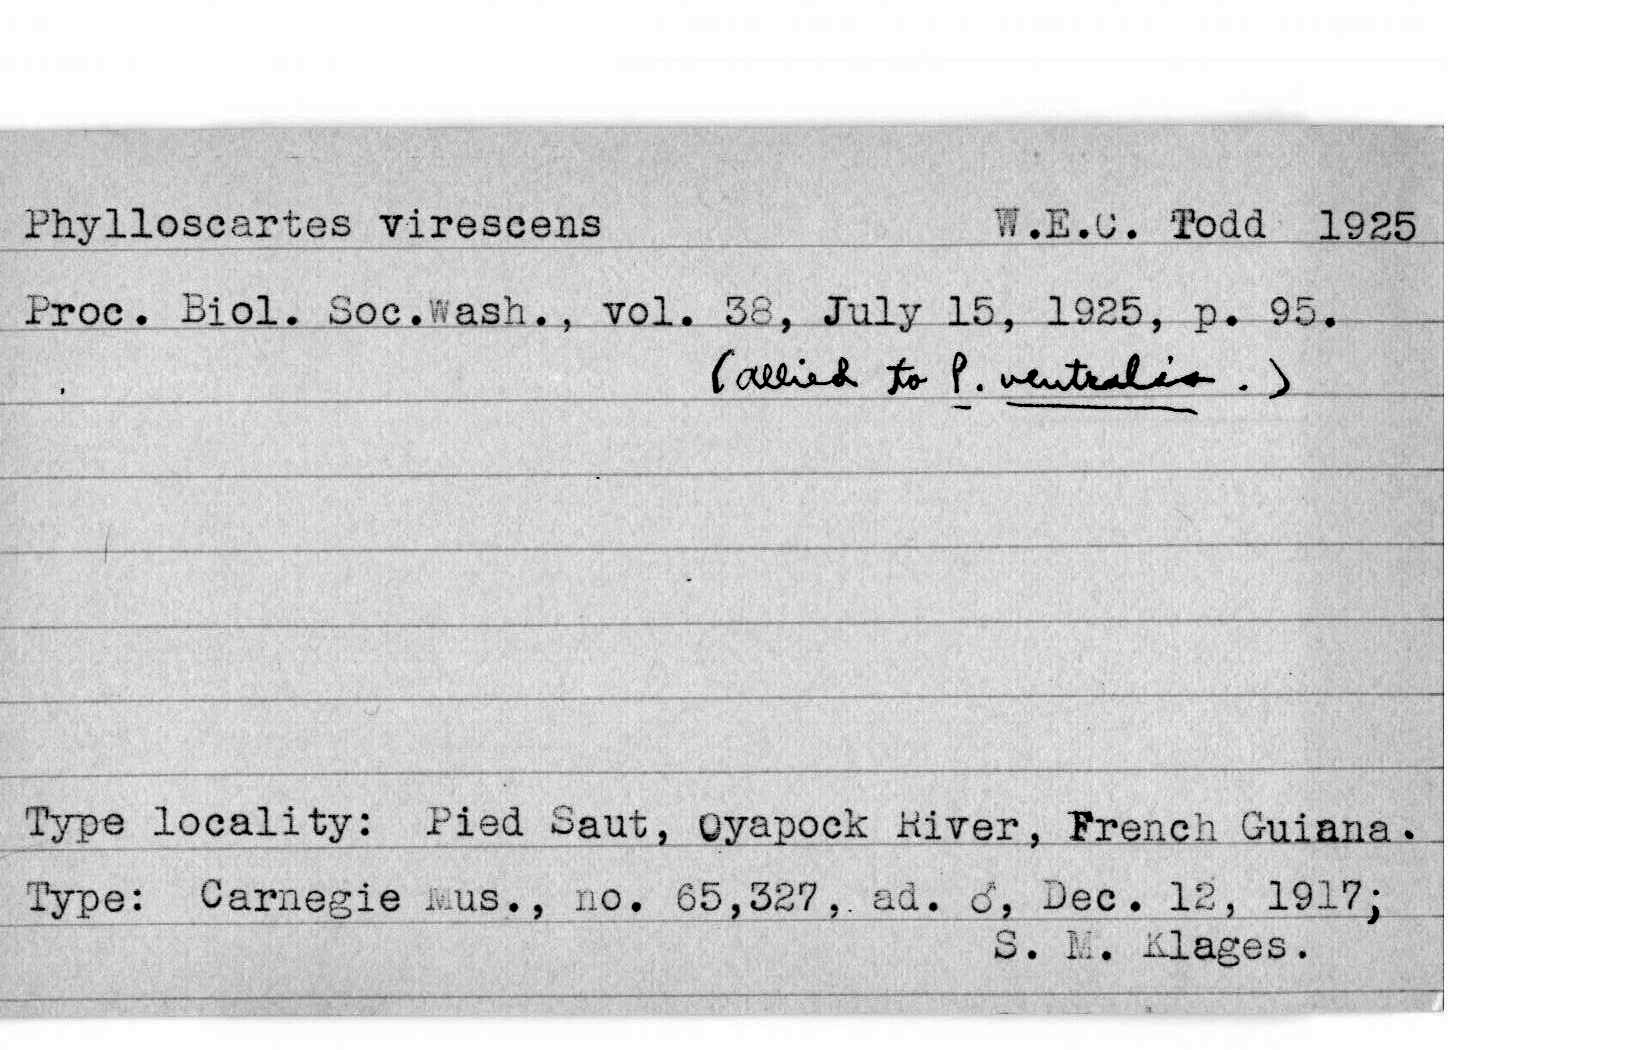 Phylloscartes virescens W.E.C. Todd 1925
Proc. Biol. Soc.Wash., vol. 38, July 15, 1925, p. 95.
(allied to P. ventralis.)
Type locality: Pied Saut, Oyapock River, French Guiana.
Type: Carnegie Mus., no. 65,327, ad. ♂, Dec. 12, 1917;
S. M. Klages.